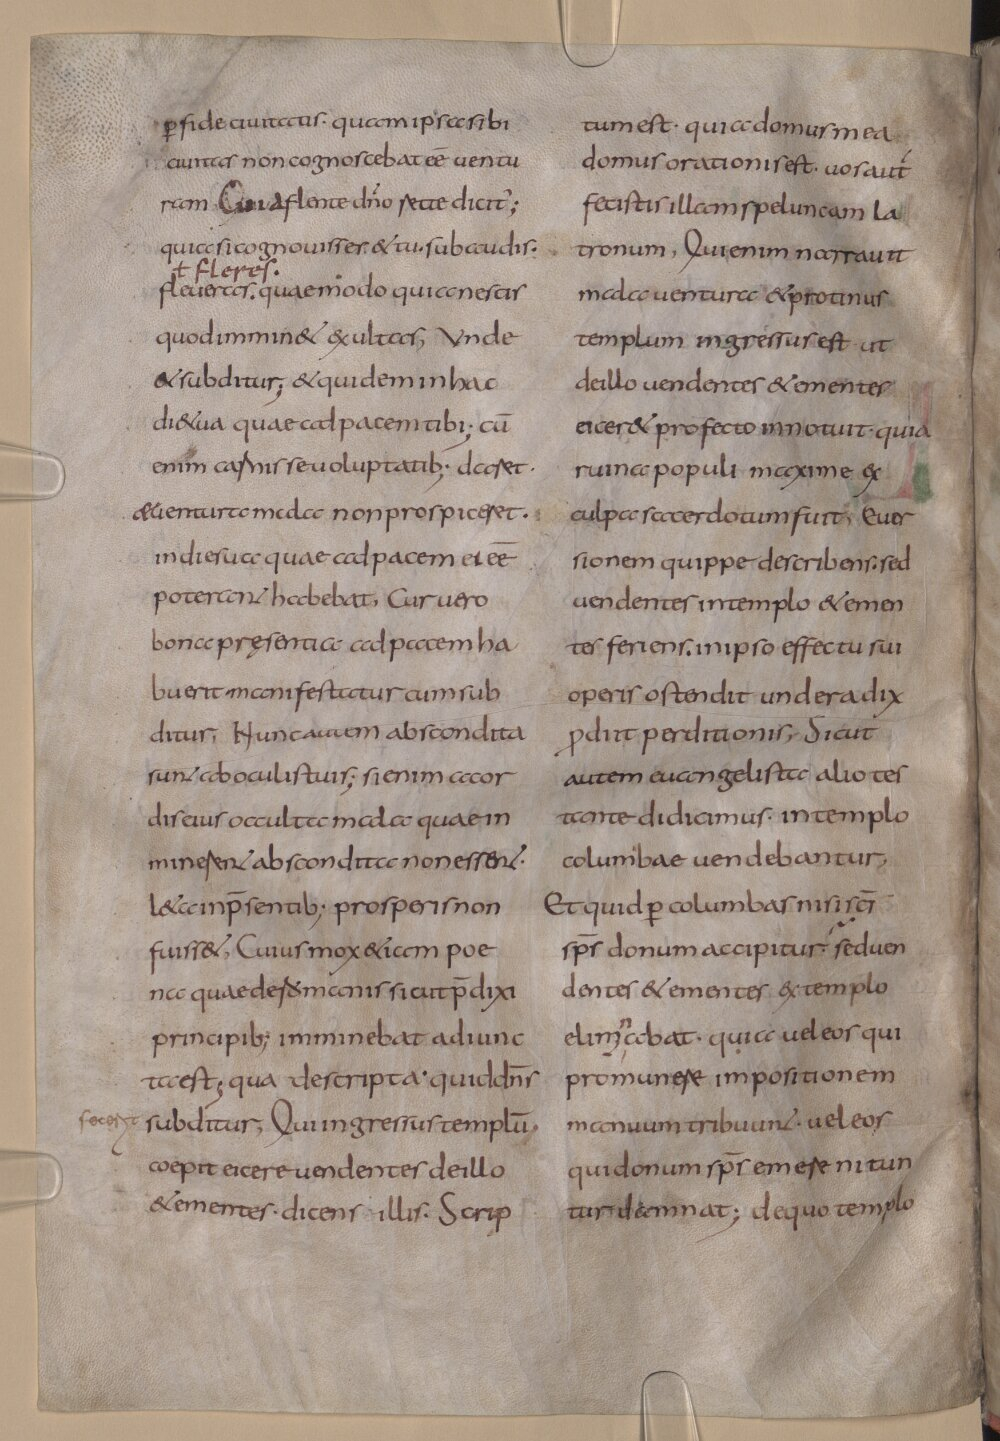 ꝑfide ciuitatis· quam ipsa sibi
ciuitas non cognoscebat eē uentu
ram Cui adflente dn̄o recte dicit᷑;
quia si cognouisses & tu· subaudis·
ł fleres·
fleueras· quae modo quia nescis
quod immin& exultas, Vnde
& subditur; & quidem in hac
die tua quae ad pacem tibi; cū
enim carnis se uoluptatib; daret·
& uentura mala non prospiceret·
in die sua quae ad pacem ei eē
poterant habebat, Cur uero
bona pręsentia ad pacem ha
buerit manifestatur cum sub
ditur, Nunc autem abscondita
sunt ab oculis tuis; si enim a cor
dis eius occulta mala quae in
minerent abscondita non essent·
l&a in p̄sentib; prosperis non
fuiss&, Cuius mox &iam poe
na quae de romanis sicut p̄dixi
principib; imminebat adiunc
ta est; qua descripta· quid dn̄s
fecerit
subditur, Qui ingressus templū·
coepit eicere uendentes de illo
& ementes· dicens illis· Scrip
tum est· quia domus mea
domus orationis est· uos aut̄
fecistis illam speluncam la
tronum, Qui enim narrauit
mala uentura & protinus
templum ingressus est ut
de illo uendentes & ementes
eicer& profecto innotuit· quia
ruina populi maxime ex
culpa sacerdotum fuit, Euer
sionem quippe describens· sed
uendentes in templo & emen
tes feriens· in ipso effectu sui
operis ostendit unde radix
ꝓdiit perditionis, Sicut
autem euangelista alio tes
tante didicimus· in templo
columbae uendebantur,
Et quid ꝑ columbas nisi sc̄i
sp̄s donum accipitur· sed uen
dentes & ementes ex templo
eliminabat· quia uel eos qui
pro munere impositionem
manuum tribuunt· uel eos
qui donum sp̄s emere nitun
tur damnat; de quo templo